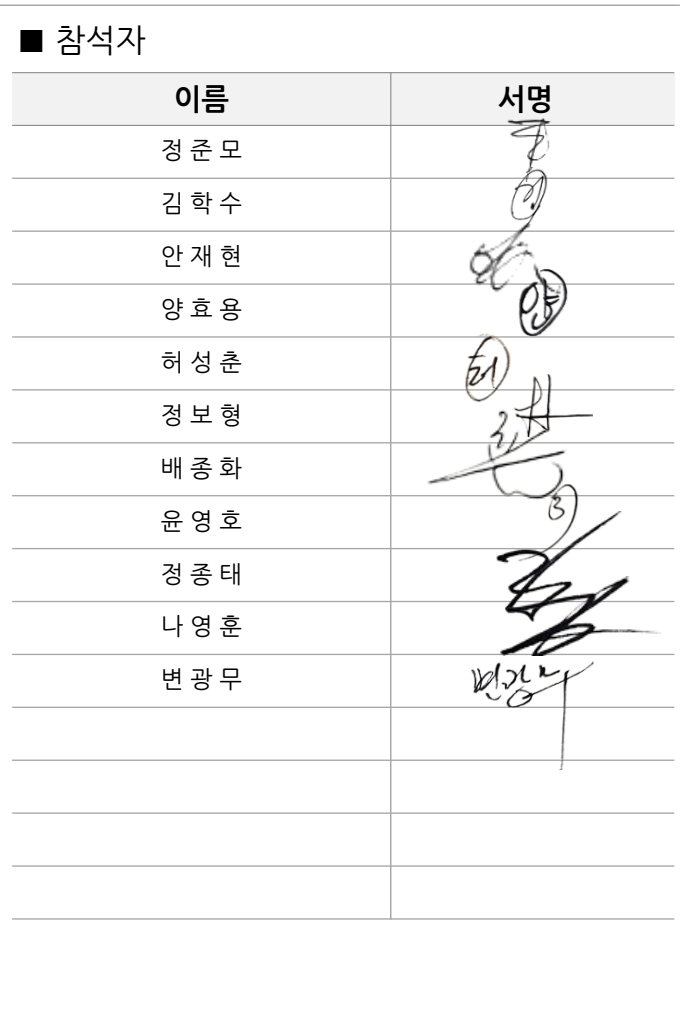 ■ 참석자
이름 서명
정준모
김학수
안재현
양효용
허성춘
정보형
배종화
윤영호
정종태
나영훈
변광무 변광무